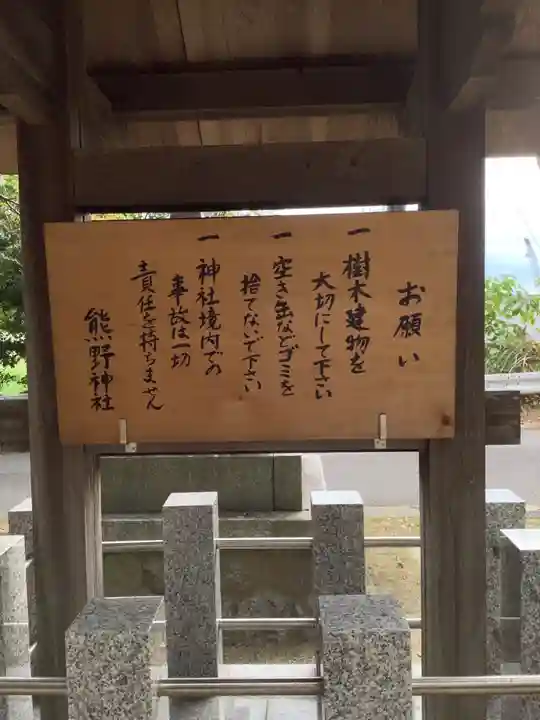 お願い
一 樹木建物を
大切にして下さい
一 空き缶などゴミを
捨てないで下さい
一 神社境内での
事故は一切
責任を持ちません
熊野神社